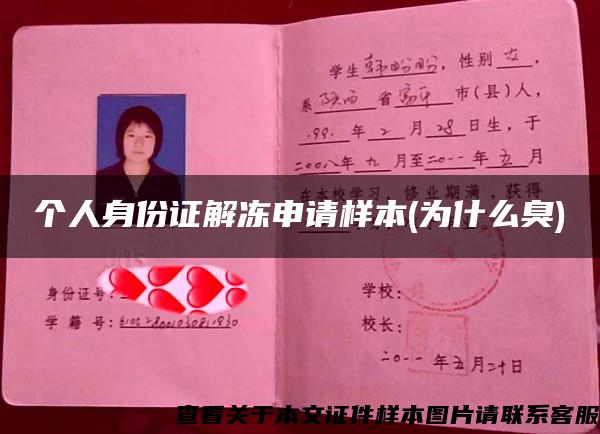 学生韩盼盼，性别女，
系陕西省富平市(县)人，
199 年2月28日生，于
二00八年九月至二0一一年五月
在本校学习，修业期满，获得
个人身份证解冻申请样本(为什么臭)
身份证号：
学 籍 号：
学校：
校长：
二0一一年五月二十日
查看关于本文证件样本图片请联系客服